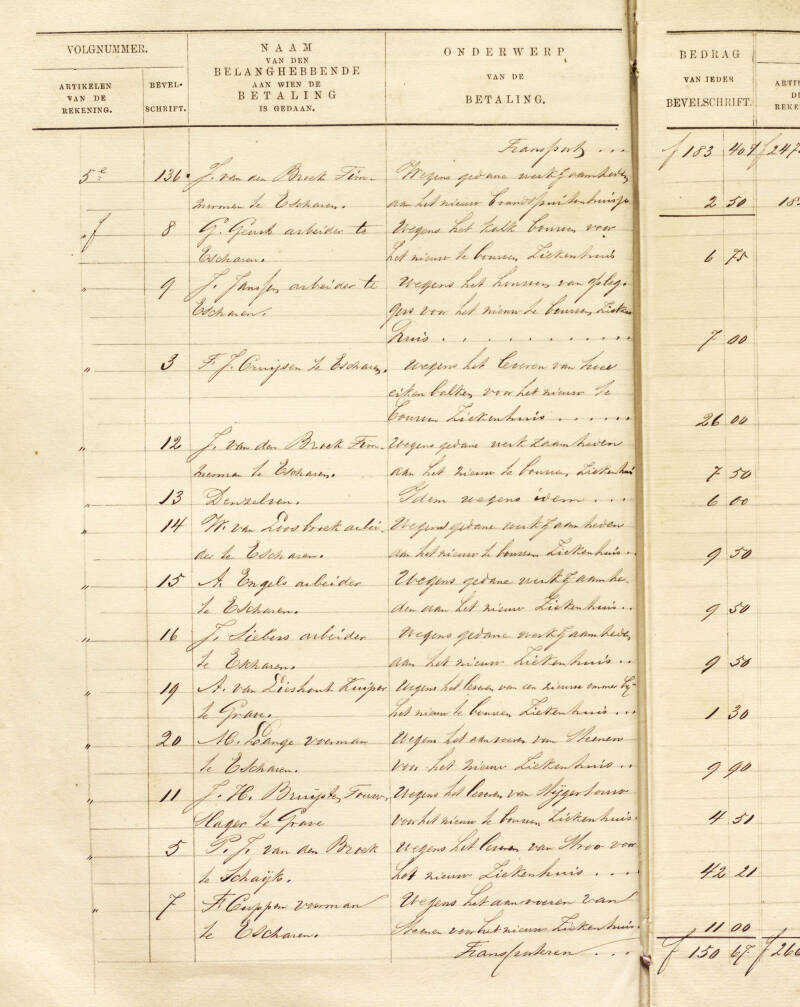 VOLGNUMMER.
ARTIKELEN VAN DE REKENING.
BEVEL-SCHRIFT.
NAAM
VAN DEN
BELANGHEBBENDE
AAN WIEN DE
BETALING
IS GEDAAN.
ONDERWERP
VAN DE
BETALING.
BEDRAG
VAN IEDER
BEVELSCHRIFT.
ARTI
DE
REKE
Transport ... f 183 40½ f 247
5e 136. J. van den Broek Tim- Wegens gedane werkzaamheden
merman te Escharen. aan het nieuw brandspuitenhuisje 2 50 18
„ f 8 G. Geurts arbeider te Wegens het kalk bouwen voor
Escharen. het nieuw te bouwen Ziekenhuis 6 75
„ 9 J. Jansen arbeider te Wegens het van
Escharen. voor het nieuw te bouwen Zieken
huis . . . . 7 00
„ 3 F. J. Cruijsen te Escharen. Wegens het leveren van twee
eiken balken voor het nieuw te
bouwen Ziekenhuis . . . . 26 00
„ 12 J. van den Broek Tim- Wegens gedane werkzaamheden
merman te Escharen. aan het nieuw te bouwen Ziekenhuis 7 50
„ 13 Denzelven. Idem wegens idem . . . 6 00
„ 14 W. van Loosbroek arbei- Wegens gedane werkzaamheden
der te Escharen. aan het nieuw te bouwen Ziekenhuis.. 9 50
„ 15 A. Engels arbeider Wegens gedane werkzaamhe-
te Escharen. den aan het nieuw Ziekenhuis.. 9 50
„ 16 J. Siebers arbeider Wegens gedane werkzaamheden
te Escharen. aan het nieuw Ziekenhuis.. 9 50
„ 19 A. van Lieshout Kuiper Wegens het leveren van een nieuwe emmer bij
te Grave. het nieuw te bouwen Ziekenhuis... 1 30
„ 20 M. Lange voerman Wegens het aanvoeren van Steenen
te Escharen. voor het nieuw Ziekenhuis.. 9 90
„ 11 J. H. Bruijsten Touw- Wegens het leveren van Stijgertouw
slager te Grave voor het nieuw te bouwen Ziekenhuis. 4 51
„ 5 P. J. van den Broek Wegens het leveren van Stroo voor
te Schaijk. het nieuw Ziekenhuis . . . . 42 21
„ 7 F. Cuppen voerman Wegens het aanvoeren van
te Escharen. Steenen voor het nieuw Ziekenhuis. 11 00
Transporteren . . . f 150 67 f 266